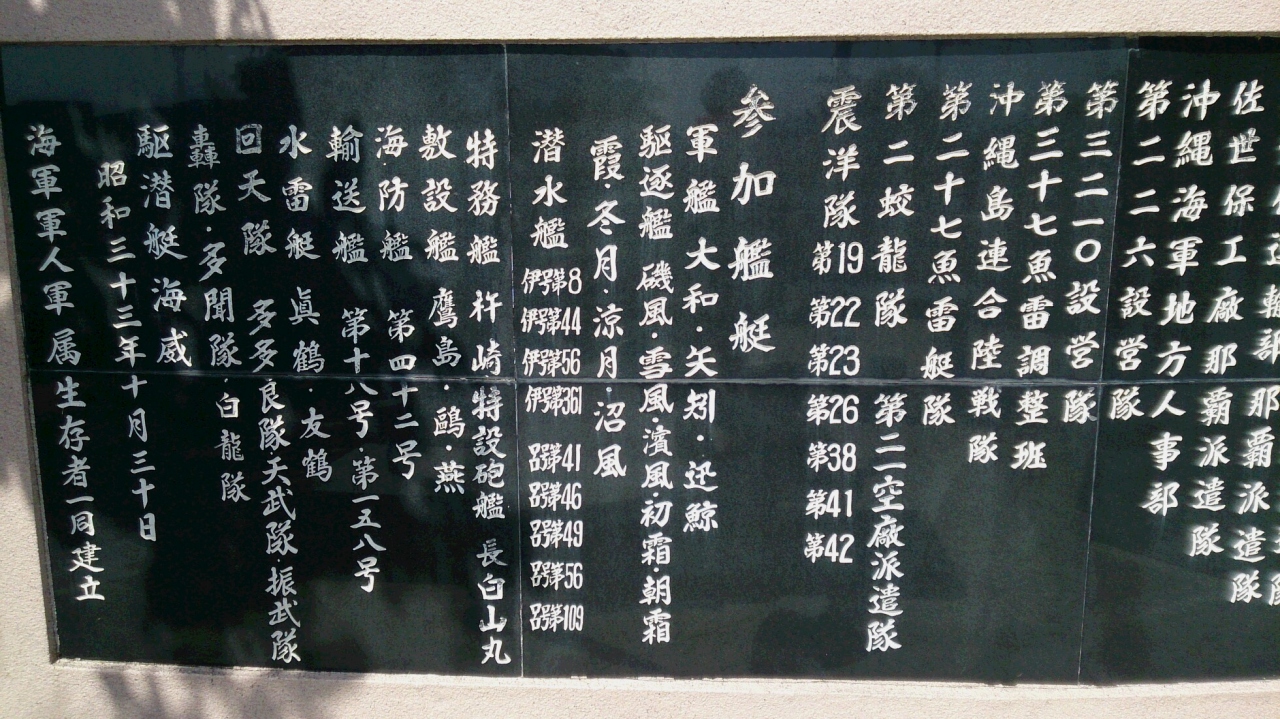 佐世保工廠那覇派遣隊
沖縄海軍地方人事部
第二二六設営隊
第三二一〇設営隊
第三十七魚雷調整班
沖縄島連合陸戦隊
第二十七魚雷艇隊
第二蛟龍隊 第二一空廠派遣隊
震洋隊 第19 第22 第23 第26 第38 第41 第42
参加艦艇
軍艦 大和・矢矧・迅鯨
駆逐艦 磯風・雪風・濱風・初霜・朝霜
霞・冬月・涼月・沼風
潜水艦 伊号第8 伊号第44 伊号第56 伊号第361 呂号第41 呂号第46 呂号第49 呂号第56 呂号第109
特務艦 杵崎 特設砲艦 長白山丸
敷設艦 鷹島・鷗・燕
海防艦 第四十二号
輸送艦 第十八号・第一五八号
水雷艇 眞鶴・友鶴
回天隊 多多良隊・天武隊・振武隊
轟隊・多聞隊・白龍隊
駆潜艇 海威
昭和三十三年十月三十日
海軍軍人軍属生存者一同建立